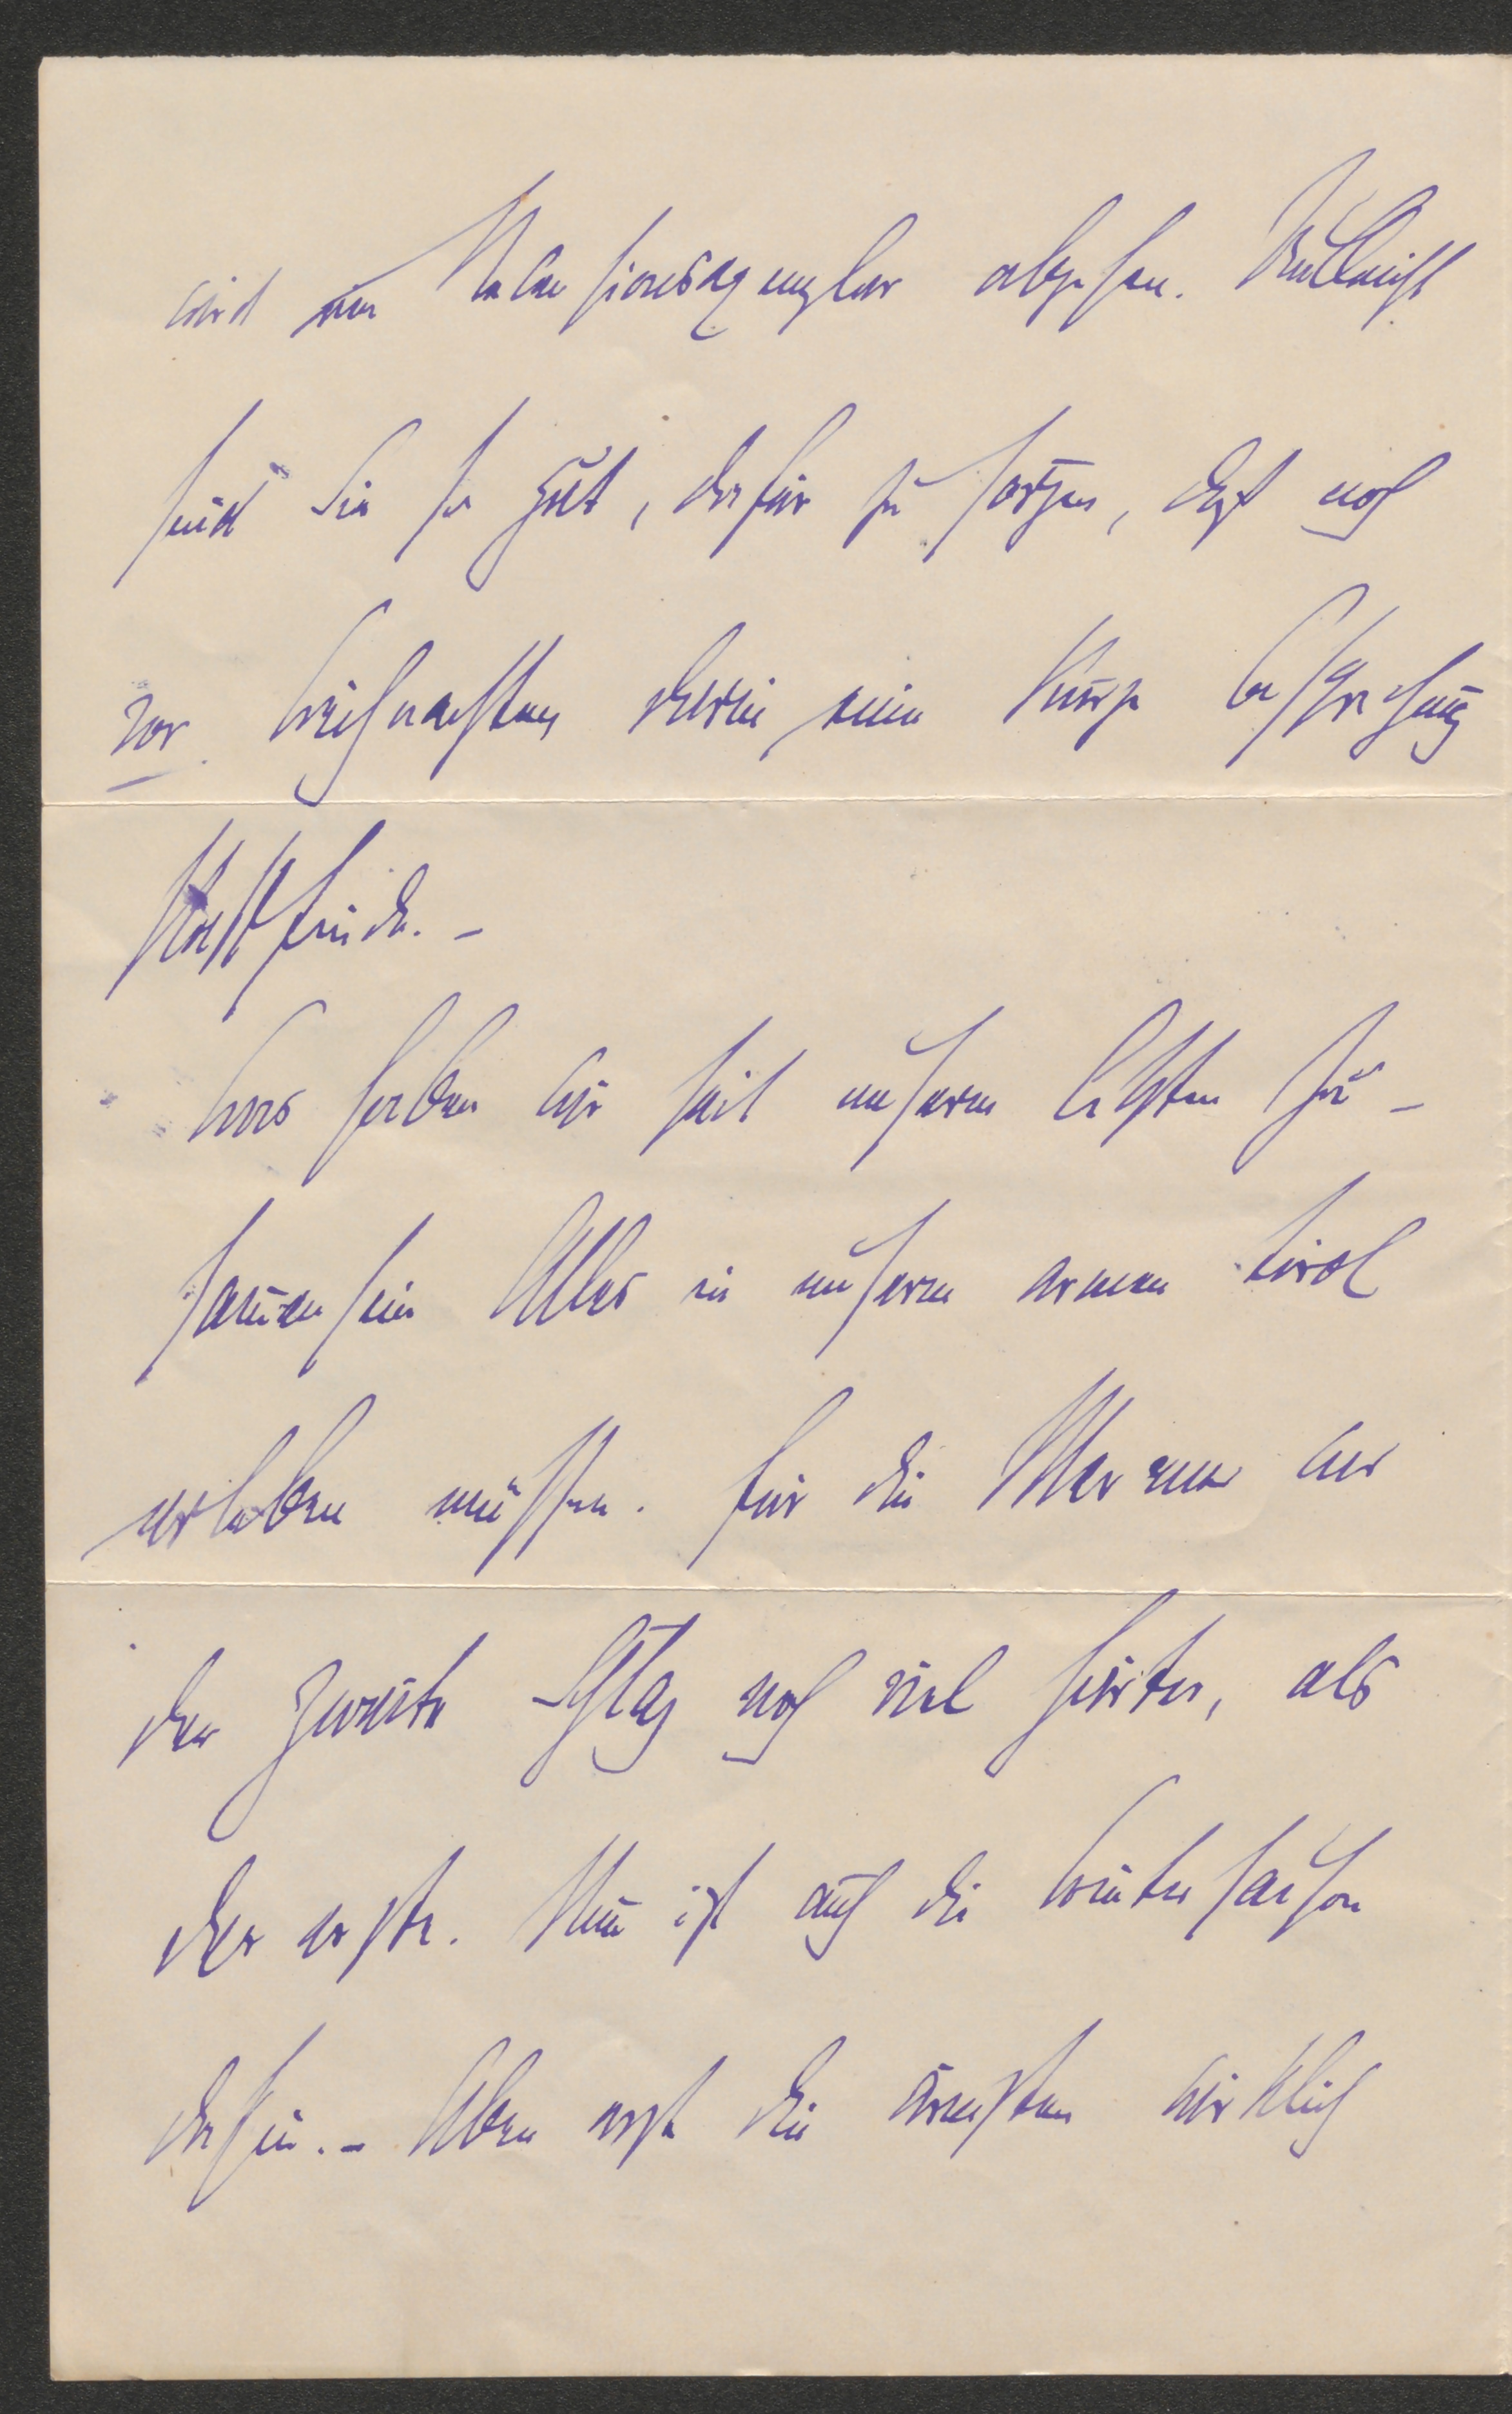 wird ein Rezensionsexemplar abgehen. Vielleicht
sind Sie so gut, dafür zu sorgen, daß noch
vor Weihnachten darin eine kurze Besprechung
stattfinde. –
Was haben wir seit unserem letzten Zu-
sammensein Alles in unserem armen Tirol
erleben müssen. Für die Meraner war
der zweite Schlag noch viel härter, als
der erste. Nun ist auch die Wintersaison
dahin. – Aber erst die ärmsten wirklich